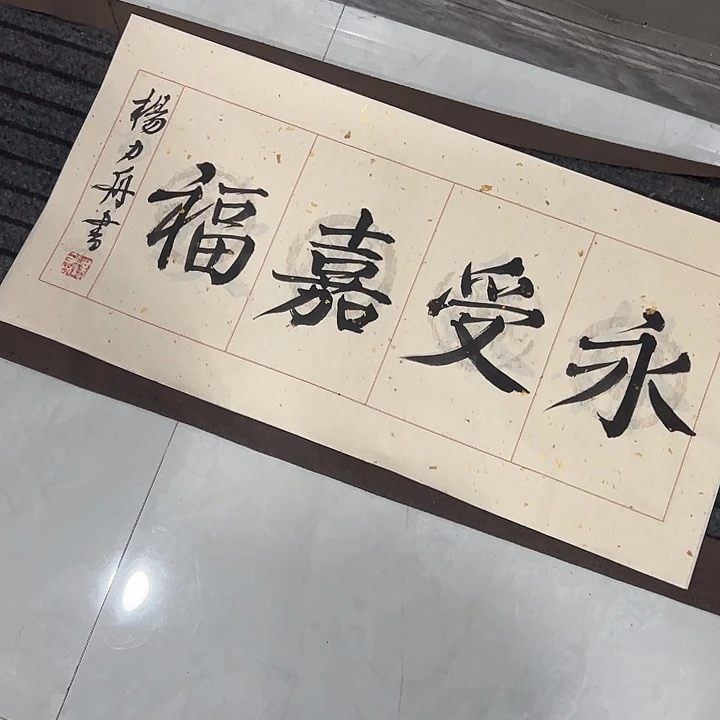 永受嘉福
楊力舟書